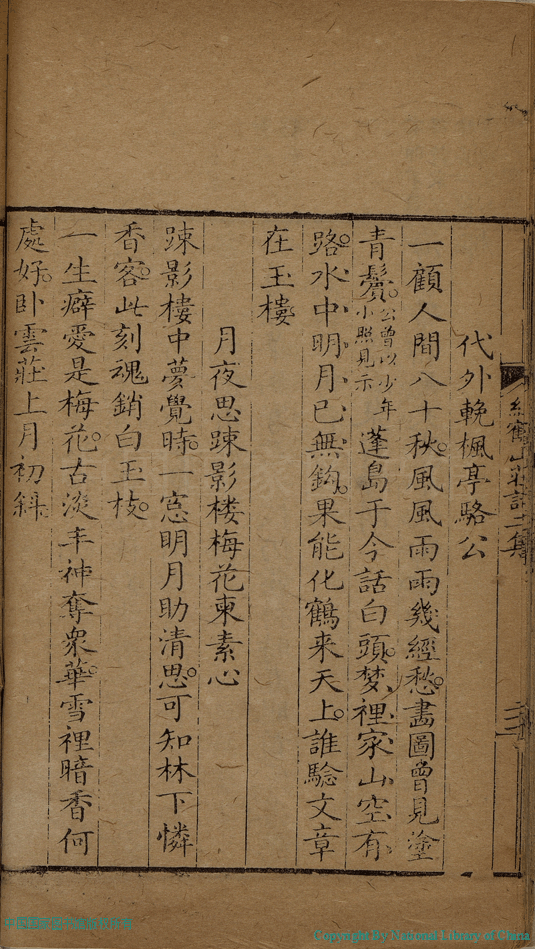 代外輓楓亭駱公
一顧人間八十秋風風雨雨幾經愁畵圖曾見塗
青鬢公曾以少年小照見示蓬島于今話白頭梦裡家山空有
路水中明月已無鈎果能化鶴来天上誰騐文章
在玉樓
月夜思踈影楼梅花柬素心
踈影樓中夢覺時一窓明月助清思可知林下憐
香客此刻魂銷白玉枝
一生癖愛是梅花古淡丰神奪衆華雪裡暗香何
處好卧雲莊上月初斜
山莊詩二集
Copyright By National Library of China